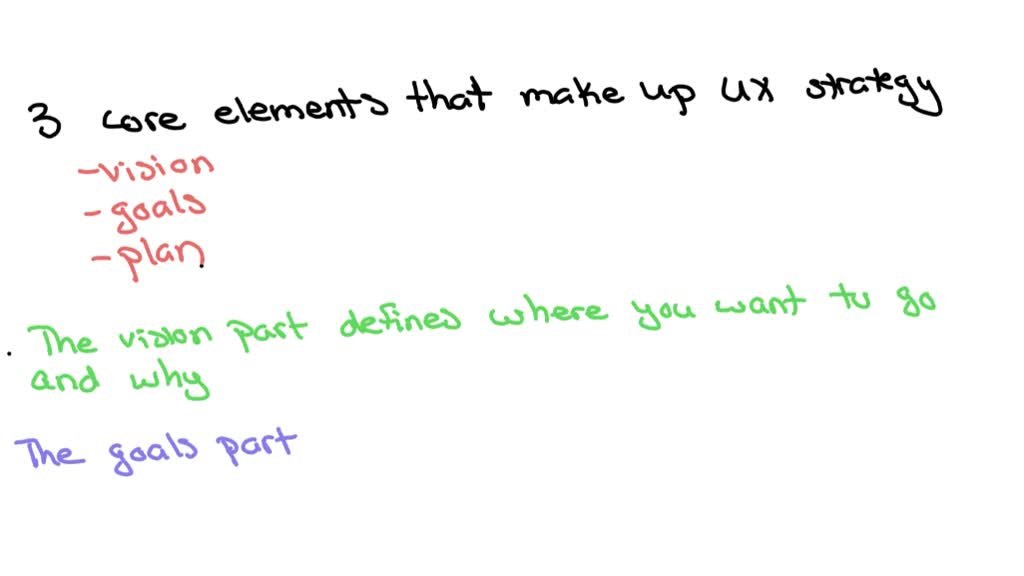 3 core elements that make up UX strategy
-vision
-goals
-plan
The vision part defines where you want to go
and why
The goals part